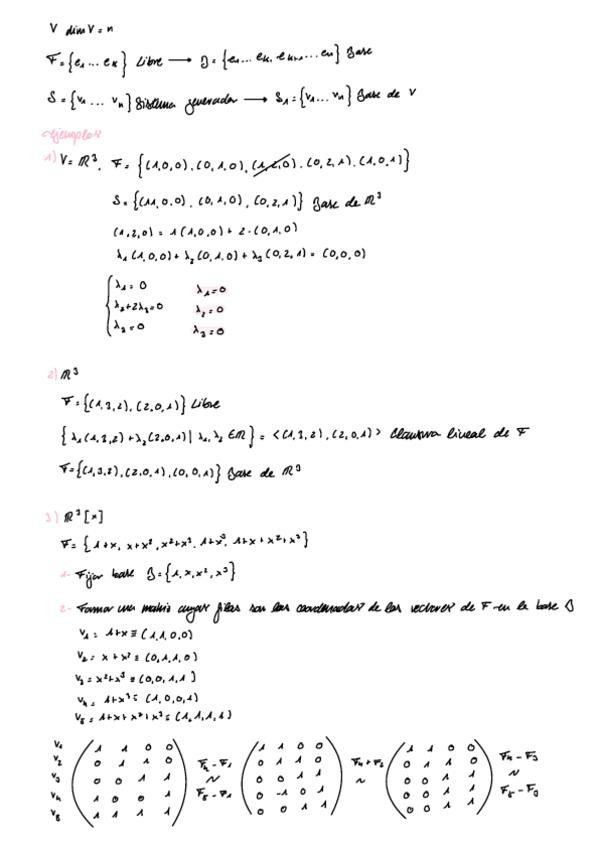 V dim V = n
F = {e₁ ... eₖ} Libre ⟶ B = {e₁ ... eₖ, eₖ₊₁ ... eₙ} Base
S = {v₁ ... vₙ} Sistema generador ⟶ S₁ = {v₁ ... vₙ} Base de V
ejemplos
1) V = ℝ³, F = {(1,0,0), (0,1,0), (1,2,0), (0,2,1), (1,0,1)}
S = {(1,0,0), (0,1,0), (0,2,1)} Base de ℝ³
(1,2,0) = 1(1,0,0) + 2·(0,1,0)
λ₁(1,0,0) + λ₂(0,1,0) + λ₃(0,2,1) = (0,0,0)
λ₁ = 0 λ₁ = 0
λ₂ + 2λ₃ = 0 λ₂ = 0
λ₃ = 0 λ₃ = 0
2) ℝ³
F = {(1,3,2), (2,0,1)} Libre
{λ₁(1,3,2) + λ₂(2,0,1) | λ₁, λ₂ ∈ ℝ} = <(1,3,2), (2,0,1)> Clausura lineal de F
F = {(1,3,2), (2,0,1), (0,0,1)} Base de ℝ³
3) ℝ³[x]
F = {1+x, x+x², x²+x³, 1+x³, 1+x+x²+x³}
1- Fijar base B = {1, x, x², x³}
2- Formar una matriz cuyas filas son las coordenadas de los vectores de F en la base B
v₁ = 1+x ≡ (1,1,0,0)
v₂ = x+x² ≡ (0,1,1,0)
v₃ = x²+x³ ≡ (0,0,1,1)
v₄ = 1+x³ ≡ (1,0,0,1)
v₅ = 1+x+x²+x³ ≡ (1,1,1,1)
v₁ 1 1 0 0 1 1 0 0 1 1 0 0
v₂ 0 1 1 0 F₄-F₁ 0 1 1 0 F₄+F₂ 0 1 1 0 F₄-F₃
v₃ 0 0 1 1 ~ 0 0 1 1 ~ 0 0 1 1 ~
v₄ 1 0 0 1 F₅-F₁ 0 -1 0 1 0 0 1 1 F₅-F₃
v₅ 1 1 1 1 0 0 1 1 0 0 1 1